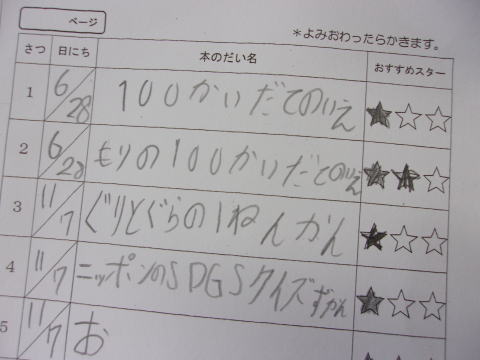 ページ
*よみおわったらかきます。
さつ 日にち 本のだい名 おすすめスター
1 6/28 100かいだてのいえ
2 6/28 もりの100かいだてのいえ
3 11/7 ぐりとぐらの1ねんかん
4 11/7 ニッポンのSDGSクイズずかん
5 11/7 お